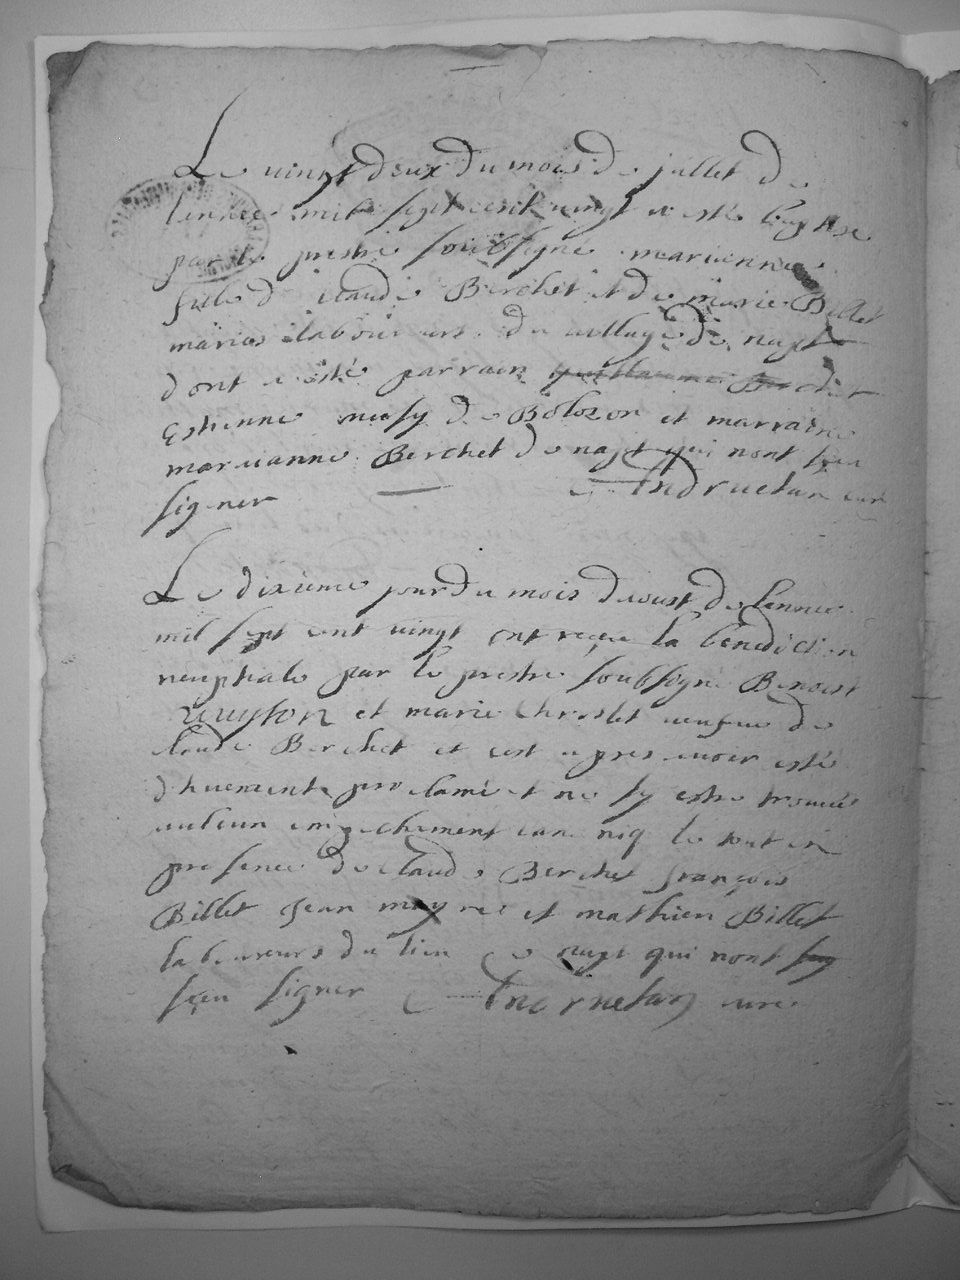 Le vingt deux du mois de jullet de
lannee mil sept cent vingt a esté baptisé
par le prestre soubsigné mariienne
fille de claude Berchet et de marie Billet
mariés laboureurs du village de napt
dont a esté parrain guillaume Berchet
Estienne neusy de Bolozon et marraine
mariianne Berchet de napt qui nont sceu
signer curé
Le dixieme jour du mois daoust de lannee
mil sept cent vingt ont receu la benediction
neuptiale par le prestre soubsigné Benoist
et marie veufue de
claude Berchet et cest apres avoir esté
dhuement proclamé et ne sy estre trouué
aulcun empechement canoniq le tout en
presence de claude Berchet françois
Billet jean et mathieu Billet
laboureurs du lieu de napt qui nont
sceu signer curé